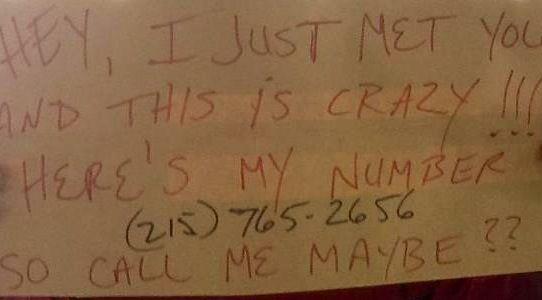 HEY, I JUST MET YOU
AND THIS IS CRAZY!!!
HERE'S MY NUMBER
(215) 765-2656
SO CALL ME MAYBE??